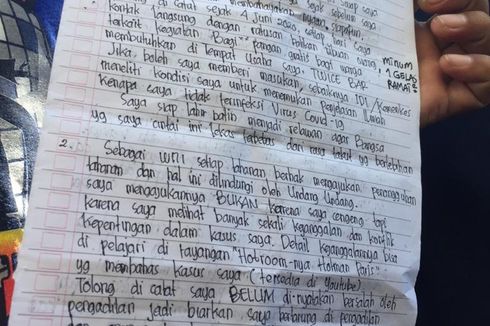 membahayakan nyawa siapapun.
di catat sejak 4 Juni 2020, selain dari saya
kontak langsung dengan ratusan bahkan ribuan orang
terkait kegiatan Bagi² pangan gratis bagi warga
membutuhkan di Tempat usaha saya. TWICE BAR.
minum 1 GELAS RAMAI²
Jika boleh saya memberi masukan, sebaiknya IDI/Kemenkes
meneliti kondisi saya untuk menemukan Penjelasan Ilmiah
kenapa saya tidak terinfeksi Virus Covid-19
Saya siap lahir batin menjadi relawan agar Bangsa
yg saya cintai ini lekas terbebas dari rasa takut yg berlebihan
2. Sebagai WNI setiap tahanan berhak mengajukan penangguhan
tahanan dan hal ini dilindungi oleh Undang Undang.
saya mengajukannya BUKAN karena saya cengeng tapi
karena saya melihat banyak sekali keganjalan dan konflik
kepentingan dalam kasus saya. Detail keganjalannya bisa
di pelajari di tayangan "Hotroom-nya Hotman Paris"
yg membahas kasus saya (tersedia di Youtube).
Tolong di catat saya BELUM di-nyatakan bersalah oleh
pengadilan jadi biarkan saya bertarung di pengadilan